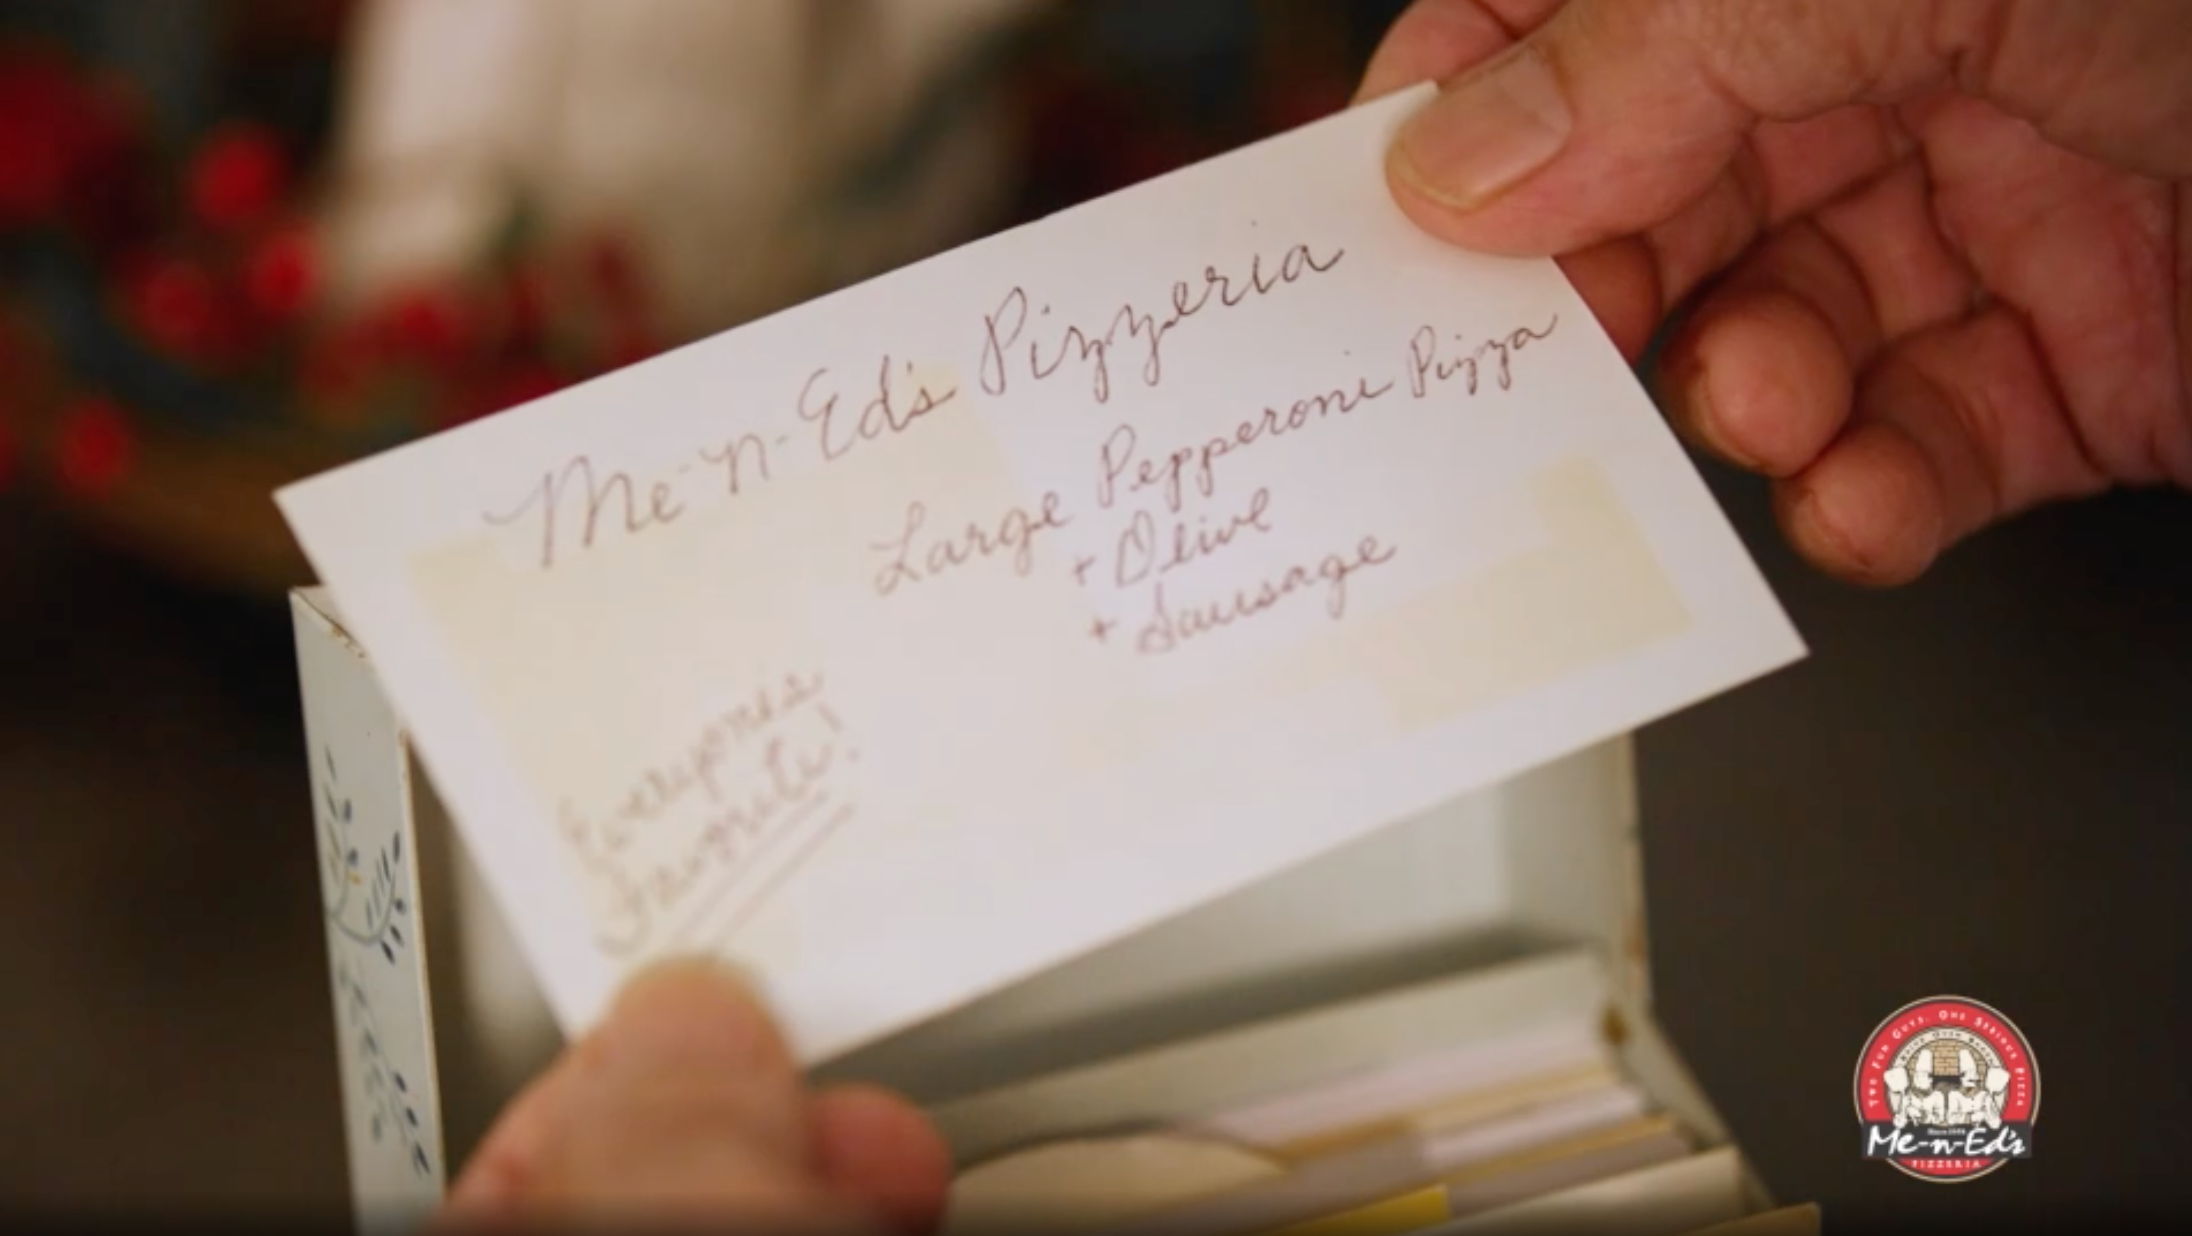 Me-n-Ed's Pizzeria
Large Pepperoni Pizza
+ Olive
+ Sausage
Everyones
Favorite!
Two Fun Guys. One Serious Pizza
Me-n-Ed's
PIZZERIA